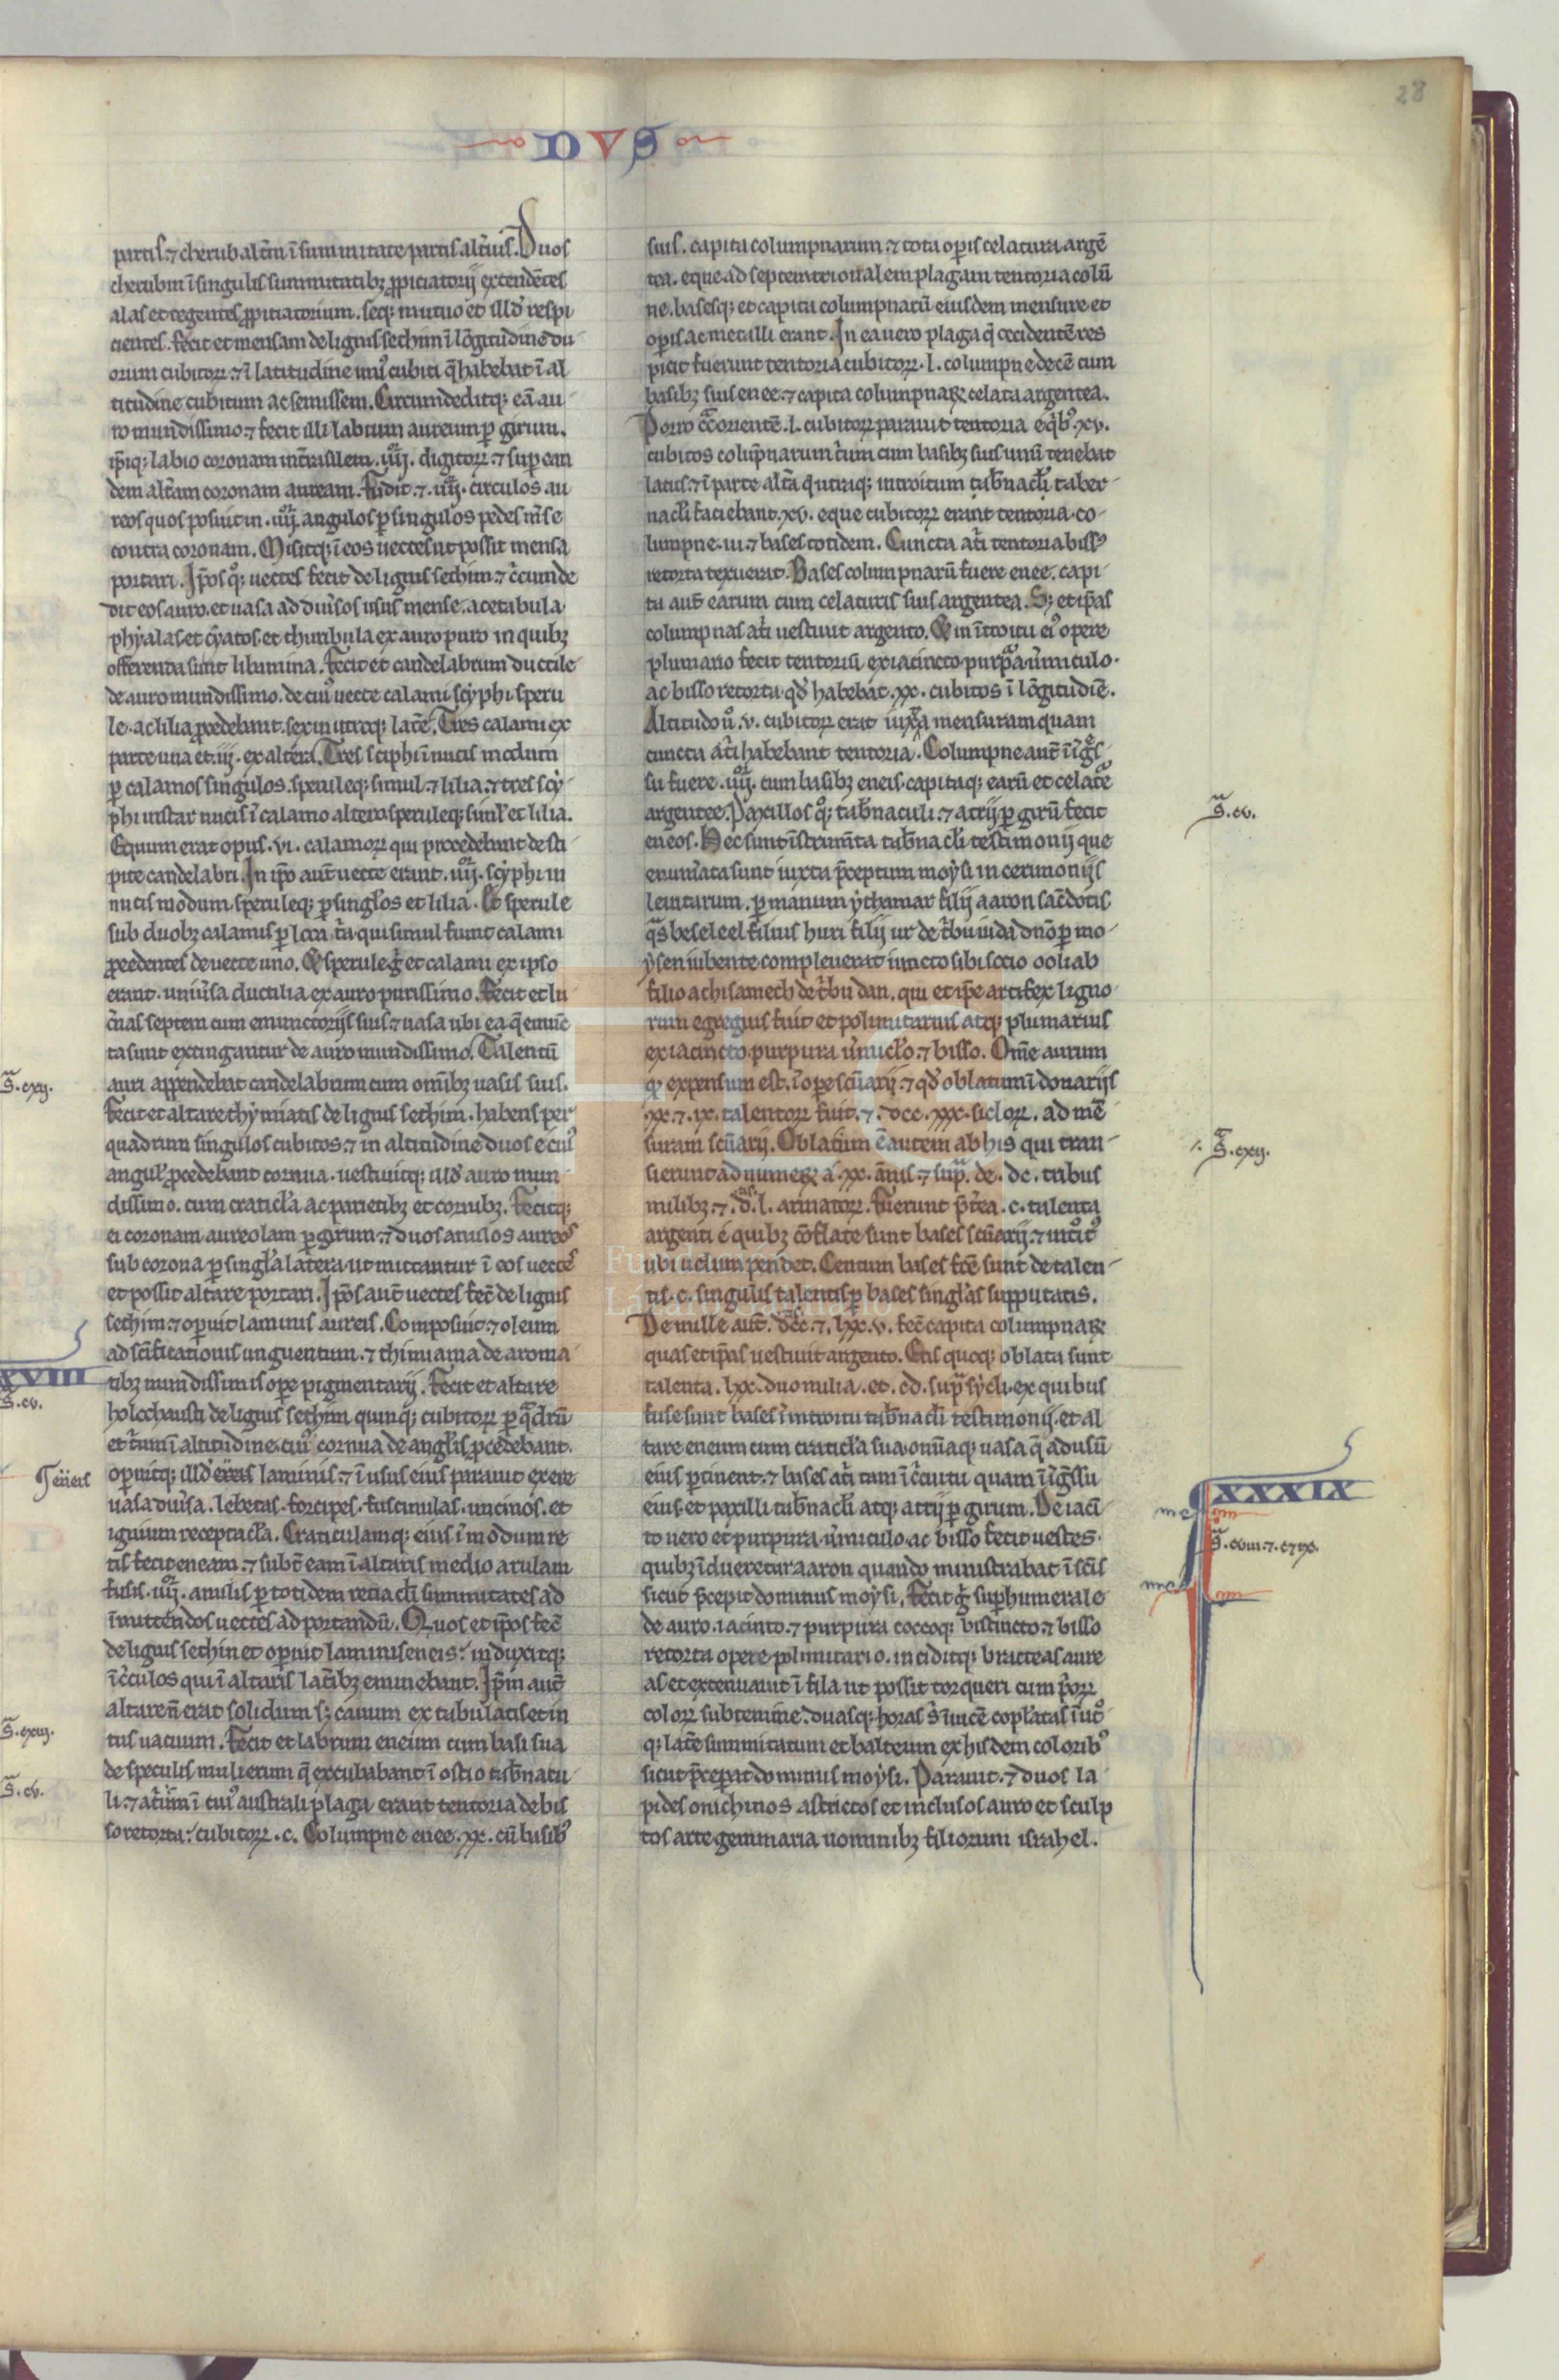 28
DVS
partis. ⁊ cherub alt̄m ī summitate partis alt̄ius. Duos
cherubin ī singulis summitatibꝫ ꝓpiciatorij extendētes
alas et tegentes ꝓpitiatorium. seqꝫ mutuo et illđ respi
cientes. fecit et mensam de lignis sechim ī lōgitudine du
orum cubitoꝝ ⁊ ī latitudine uniꝰ cubiti q̄ habebat ī al
titudine cubitum ac semissem. Circumdeditqꝫ eā au
ro mundissimo. ⁊ fecit illi labium aureum ꝑ girum.
ip̄iqꝫ labio coronam int̄rasilem. iiij. digitoꝝ. ⁊ suꝑ ean
dem alt̄am coronam auream. fudit. ⁊. iiij. circulos au
reos quos posuit in. iiij. angulos ꝑ singulos pedes m̄se
contra coronam. Misitqꝫ ī eos uectes ut possit mensa
portari. Ip̄os qͦꝫ uectes fecit de lignis sechim. ⁊ c̄cumde
dit eos auro. et uasa ad diu̾sos usus mense. acetabula
phyalas et cyatos et thuribula ex auro puro in quibꝫ
offerenda sunt libamina. Fecit et candelabrum ductile
de auro mundissimo. de cuiꝰ uecte calami scyphi speru
le. ac lilia ꝓcedebant. sex in utroqꝫ lat̄e. Tres calami ex
parte una et. iij. ex altera. Tres sciphi ī nucis modum
ꝑ calamos singulos. speruleqꝫ simul. ⁊ lilia. ⁊ tres scy
phi instar nucis ī calamo altero. speruleqꝫ simł et lilia.
Equum erat opus. vi. calamoꝝ qui procedebant de sti
pite candelabri. In ip̄o aut̄ uecte erant. iiij. scyphi in
nucis modum. speruleqꝫ ꝑ singłos et lilia. Et sperule
sub duobꝫ calamis ꝑ loca t̾a. qui simul fiunt calami
ꝓcedentes de uecte uno. Et sperule g̾ et calami ex ipso
erant. uniu̾sa ductilia ex auro purissimo. Fecit et lu
c̾nas septem cum emunctorijs suis. ⁊ uasa ubi ea q̄ emūc
ta sunt extingantur de auro mundissimo. Talentū
auri appendebat candelabrum cum omībꝫ uasis suis.
Fecit et altare thymiatis de lignis sechim. habens per
quadrum singulos cubitos. ⁊ in altitudine duos e cuiꝰ
anguł ꝓcedebant cornua. uestiuitqꝫ illđ auro mun
dissimo. cum craticła ac parietibꝫ et cornibꝫ. Fecitqꝫ
ei coronam aureolam ꝑ girum. ⁊ duos anulos aureos
sub corona ꝑ singła latera. ut mittantur ī eos uectes
et possit altare portari. Ip̄os aut̄ uectes fec̄ de lignis
sechim. ⁊ oꝑuit laminis aureis. Composuit. ⁊ oleum
ad sc̄ificationis unguentum. ⁊ thimiama de aroma
tibꝫ mundissimis oꝑe pigmentarij. Fecit et altare
holochausti de lignis sethim quinqꝫ cubitoꝝ ꝑ q̾drū
et t̾um ī altitudine. cuiꝰ cornua de angłis ꝓcedebant.
oꝑuitqꝫ illđ ereis laminis. ⁊ ī usus eius parauit ex ere
uasa diu̾sa. lebetas. forcipes. fuscinulas. uncinos. et
ignium receptacła. Craticulamqꝫ eius ī modum re
tis fecit eneam. ⁊ subt̄ eam ī altaris medio arulam
fusis. iiij. anulis ꝑ totidem retiacłi summitates ad
īmittendos uectes ad portandū. Quos et ip̄os fec̄
de lignis sechin et oꝑuit laminis eneis. induxitqꝫ
ī c̾culos qui ī altaris lat̄ibꝫ eminebant. Ip̄m aut̄
altare n̄ erat solidum sꝫ cauum ex tabulatis et in
tus uacuum. Fecit et labrum eneum cum basi sua
de speculis mulierum q̄ excubabant ī ostio tab̾nacu
li. ⁊ at̾um ī cuiꝰ australi plaga erant tentoria de bis
so retorta. cubitoꝝ. c. Columpne enee. xx. cū basibꝰ
suis. capita columpnarum. ⁊ tota oꝑis celatura argē
tea. eque ad septemtrionalem plagam tentoria colū
ne. basesqꝫ et capita columpnarū eiusdem mensure et
oꝑis ac metalli erant. In ea uero plaga q̄ occidentē res
picit fuerunt tentoria cubitoꝝ. l. columpne decē cum
basibꝫ suis enee. ⁊ capita columpnaꝝ celata argentea.
Porro c̄ orientē. l. cubitoꝝ parauit tentoria e q̾bꝰ. xv.
cubitos colūpnarum t̾um cum basibꝫ suis unū tenebat
latus. ⁊ ī parte alt̄a q̾ utraqꝫ introitum tab̾nacłi taber
nacłi faciebant. xv. eque cubitoꝝ erant tentoria. co
lumpne. iii. ⁊ bases totidem. Cuncta at̾i tentoria bissꝰ
retorta texuerat. Bases columpnarū fuere enee. capi
ta aut̄ earum cum celaturis suis argentea. Sꝫ et ip̄as
columpnas at̾i uestiuit argento. Et in ītroitu eiꝰ opere
plumario fecit tentoriū ex iacincto. purp̾a. u̾miculo.
ac bisso retorta. qđ habebat. xx. cubitos ī lōgitudiē.
Altitudo u̾o. v. cubitoꝝ erat iuxta mensuram quam
cuncta at̾i habebant tentoria. Columpne aut̄ ī īg̾s
su fuere. iiij. cum basibꝫ eneis. capitaqꝫ earū et celat̄e
argentee. Paxillos qͦꝫ tab̾naculi. ⁊ atrij ꝑ girū fecit
eneos. Hec sunt īstrum̄ta tab̾nacłi testimonij que
enum̾ata sunt iuxta p̄ceptum moysi in cerimonijs
leuitarum. ꝑ manum ychamar filij aaron sac̾dotis
q̾s beseleel filius huri filij ur de t̾bu iuda dn̄o ꝑ mo
ysen iubente compleuerat iuncto sibi socio ooliab
filio achisamech de t̾bu dan. qui et ip̄e artifex ligno
rum egregius fuit et polimitarius atqꝫ plumarius
ex iacincto. purpura u̾micło. ⁊ bisso. Om̄e aurum
qđ expensum est. ī oꝑe sc̄uarij. ⁊ qđ oblatum ī donarijs
xx. ⁊. ix. talentoꝝ fuit. ⁊. dcc. xxx. sicloꝝ. ad mē
suram sc̄uarij. Oblatum ē autem ab his qui tran
sierunt ad numeꝝ a. xx. annis. ⁊ sup̾. de. dc. tribus
milibꝫ. ⁊. d. l. armatoꝝ. Fuerunt p̄t̾ea. c. talenta
argenti e quibꝫ cōflate sunt bases sc̄uarij. ⁊ int̾oitꝰ
ubi uelum pendet. Centum bases fc̄e sunt de talen
tis. c. singulis talentis ꝑ bases singłas supputatis.
De mille aut̄. dcc. ⁊. lxx. v. fec̄ capita columpnaꝝ
quas et ip̄as uestiuit argento. Eris quoqꝫ oblata sunt
talenta. lxx. duo milia. et. cd. sup̾ sycli. ex quibus
fuse sunt bases ī introitu tab̾nacłi testimonij. et al
tare eneum cum craticła sua. omniaqꝫ uasa q̄ ad usū
eius ꝑtinent. ⁊ bases at̾i tam ī c̾cuitu quam ī īg̾ssu
eius. et paxilli tab̾nacłi atqꝫ atrij ꝑ girum. De iaci̅
to uero et purpura. u̾miculo. ac bisso fecit uestes.
quibꝫ īdueretur aaron quando ministrabat ī sc̄is
sicut p̄cepit dominus moysi. Fecit g̾ suꝑhumerale
de auro. iacinto. ⁊ purpura coccoqꝫ bistincto. ⁊ bisso
retorta opere polimitario. inciditqꝫ bracteas aure
as et extenuauit ī fila ut possit torqueri cum p̾oꝝ
coloꝝ subtemine. duasqꝫ horas s̾ īuicē copłatas ī ut̾o
qꝫ lat̄e summitatum et balteum ex hisdem coloribꝰ
sicut p̄ceperat dominus moysi. Parauit. ⁊ duos la
pides onichinos astrictos et inclusos auro et sculp
tos arte gemmaria nominibꝫ filiorum israhel.
S̄. cxij.
XVIII
S̄. cv.
S̄. cv.
S̄. cv.
S̄. cxij.
XXXIX
Fundación
Lázaro Galdiano